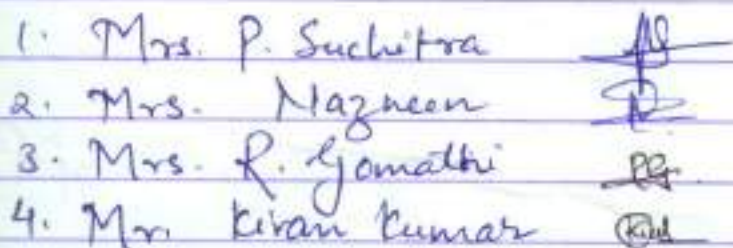 1. Mrs. P. Suchitra
2. Mrs. Nazneen
3. Mrs. R. Gomathi
4. Mr. Kiran Kumar